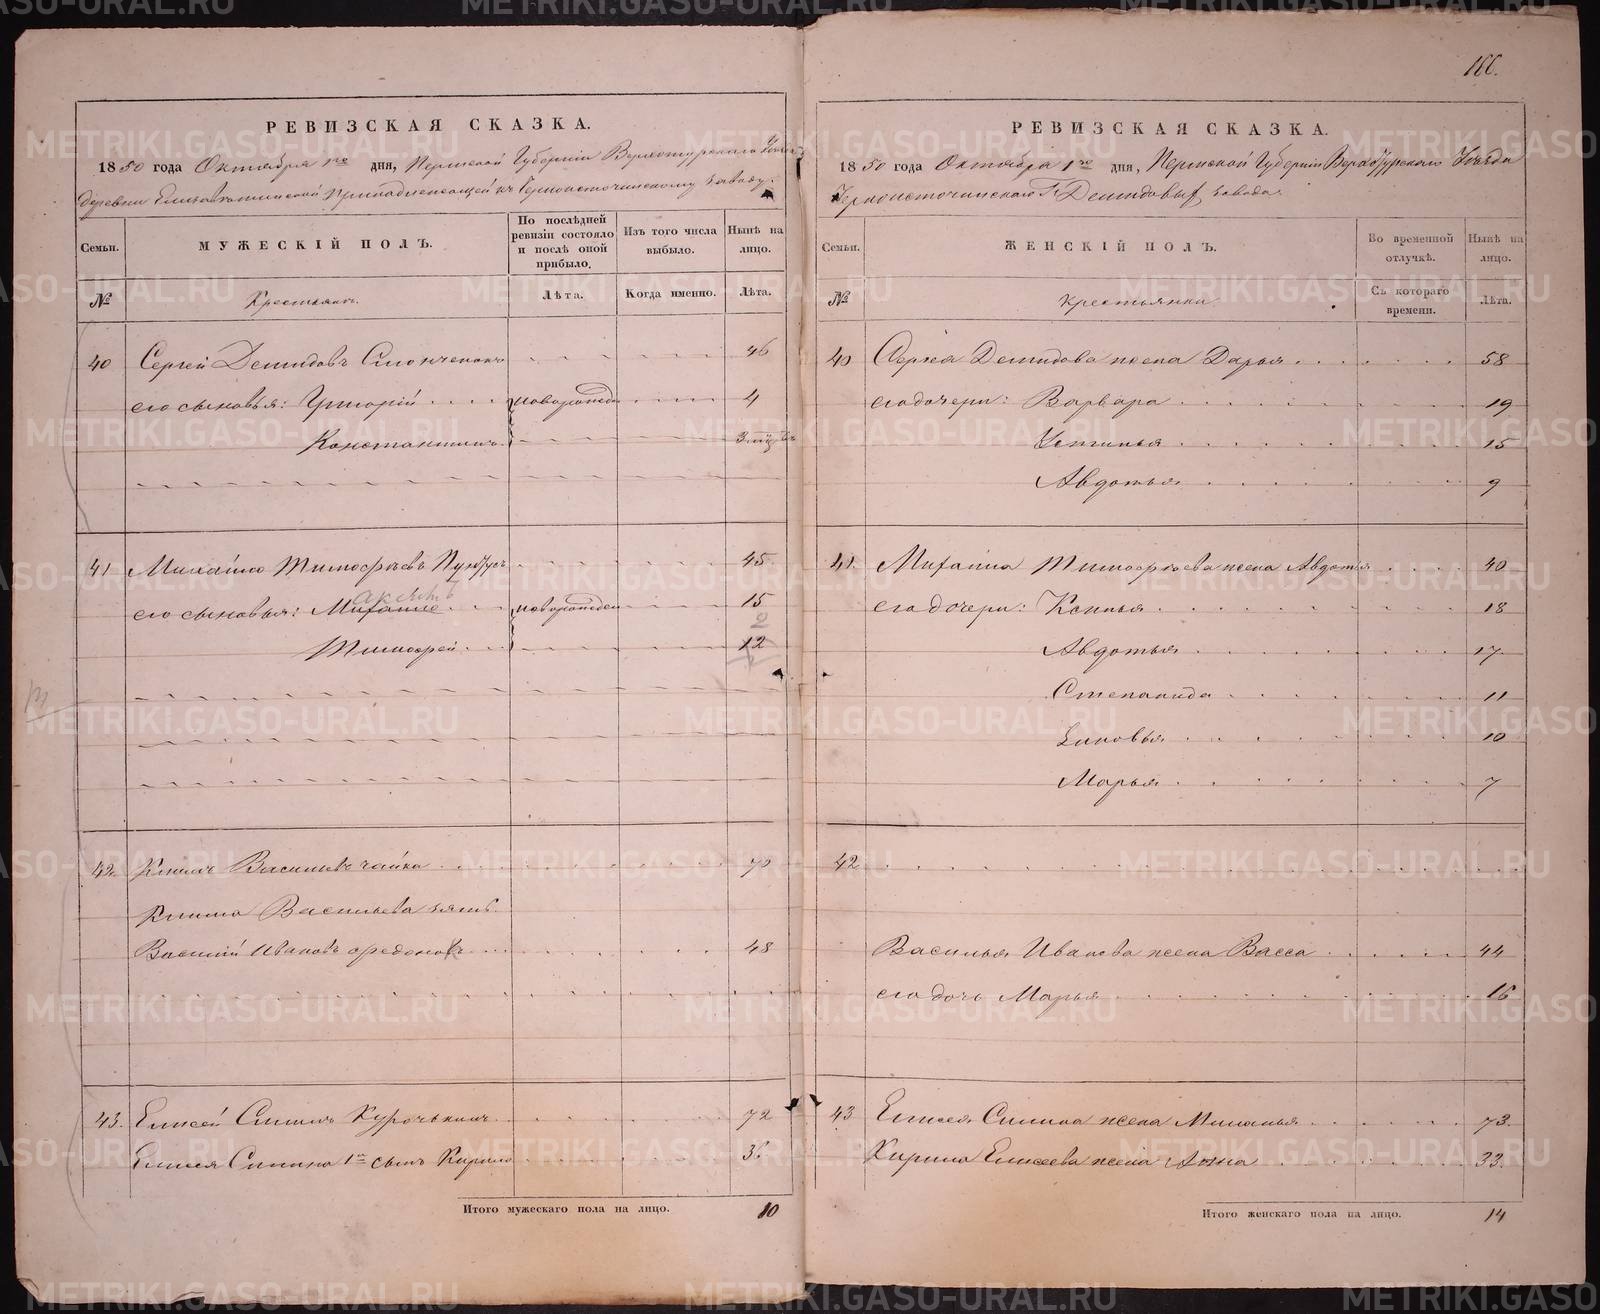 166.
РЕВИЗСКАЯ СКАЗКА.
1850 года Октября 1го дня, Пермской Губернии Верхотурского Уезда
деревни Елизаветинской Принадлежащей къ Черноисточинскому заводу.
Семьи. МУЖЕСКІЙ ПОЛЪ. По послѣдней ревизіи состояло и послѣ оной прибыло. Изъ того числа выбыло. Нынѣ на лицо.
№ Крестьянъ. Лѣта. Когда именно. Лѣта.
40 Сергей Демидовъ 46
его сыновья: Григорий новорожден 4
Константинъ
41 Михайло Тимофеевъ 45
его сыновья: новорожден 15
Тимофей 12 2
42. Климъ Васильевъ чайка 70
Клима Васильева зять
Василий Ивановъ 48
43. Елисей Силинъ Курочькинъ 72
Елисея Силина 1й сынъ Кирило 36
Итого мужескаго пола на лицо. 10
РЕВИЗСКАЯ СКАЗКА.
1850 года Октября 1го дня, Пермской Губернии Верхотурского Уезда
Черноисточинского Г. Демидовых завода.
Семьи. ЖЕНСКІЙ ПОЛЪ. Во временной отлучкѣ. Нынѣ на лицо.
№ Крестьянки Съ котораго времени. Лѣта.
40 Сергея Демидова жена Дарья 58
его дочери: Варвара 19
Устинья 15
Авдотья 9
41. Михайла Тимофеева жена Авдотья 40
его дочери: Ксинья 18
Авдотья 17
Степанида 11
Зиновья 10
Марья 7
42
Василья Иванова жена Васса 44
его дочь Марья 16
43 Елисея Силина жена Миланья 73
Кирила Елисеева жена Анна 33
Итого женскаго пола на лицо. 14
METRIKI.GASO-URAL.RU